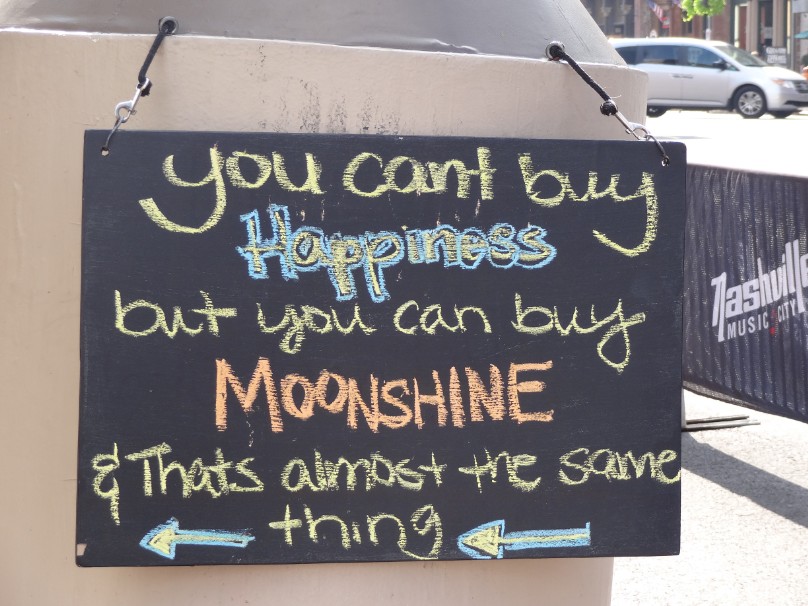 you cant buy
Happiness
but you can buy
MOONSHINE
& Thats almost the same
thing
Nashville
MUSIC CITY